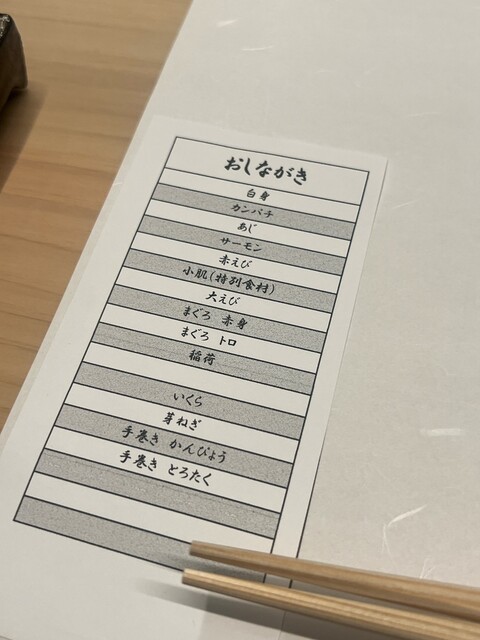 おしながき
白身
カンパチ
あじ
サーモン
赤えび
小肌(特別食材)
大えび
まぐろ 赤身
まぐろ トロ
稲荷
いくら
芽ねぎ
手巻き かんぴょう
手巻き とろたく